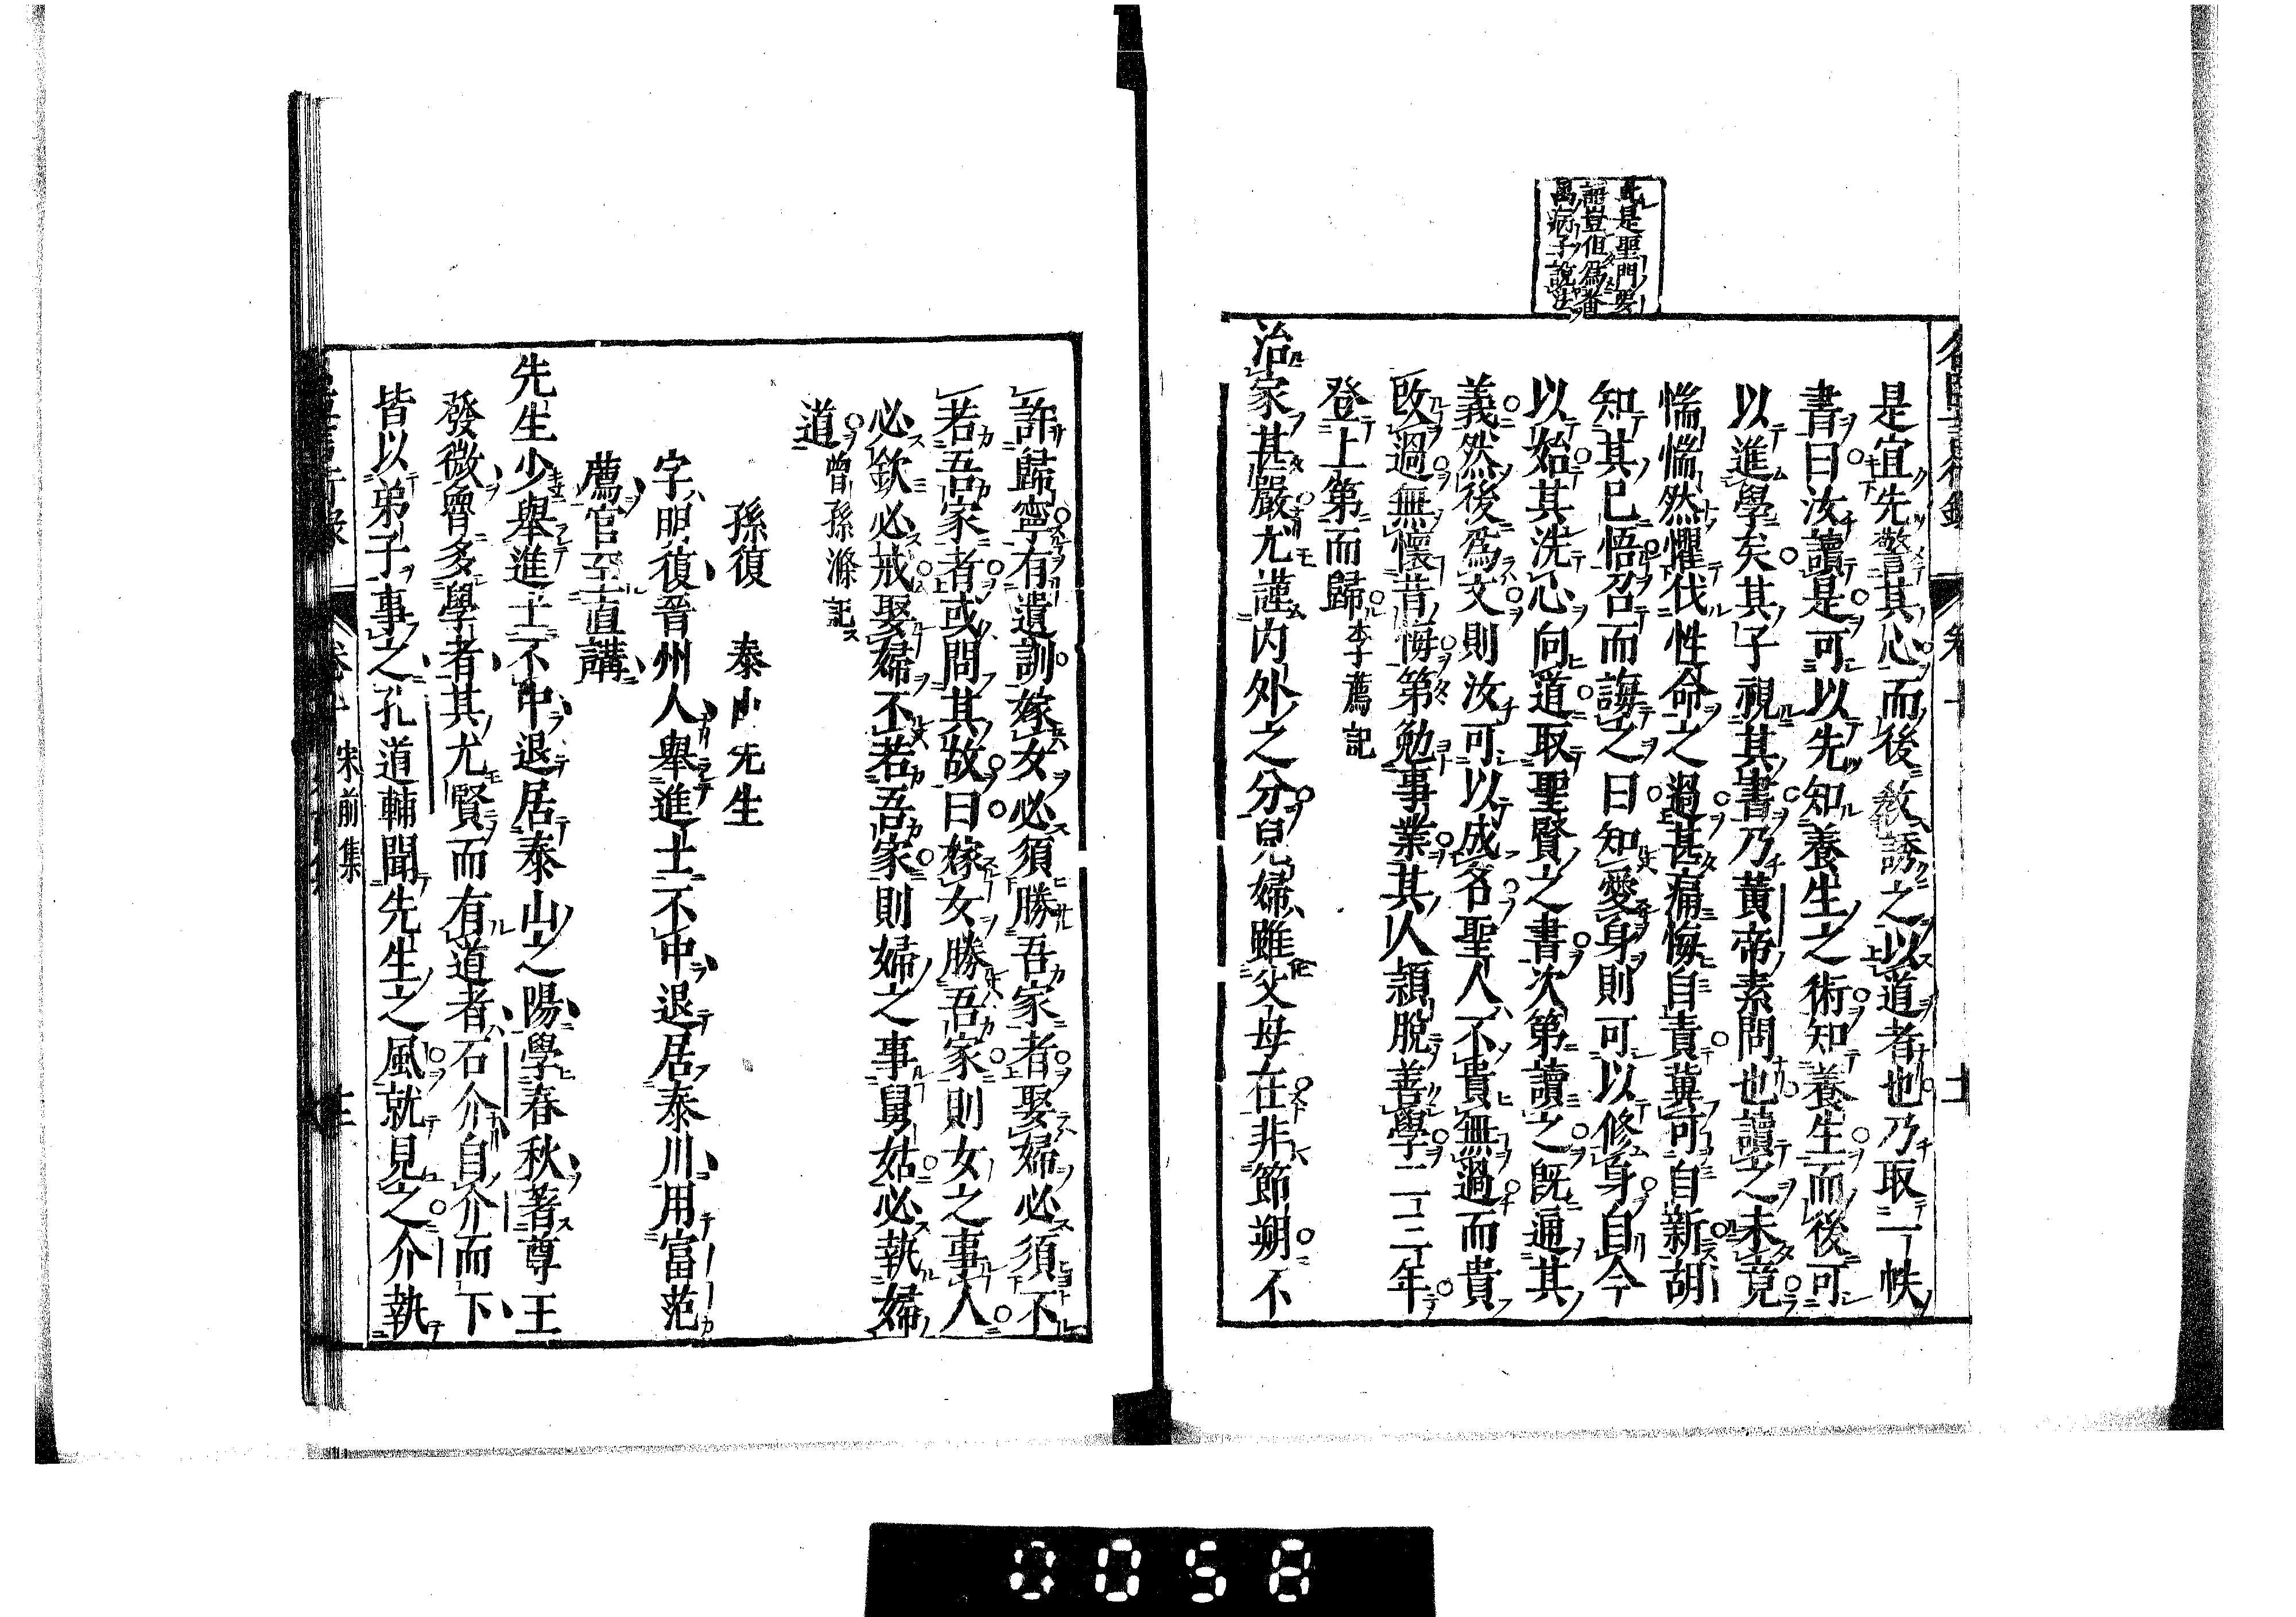 此是聖門要
語豈但爲番
禺病子說法
是宜先警其心而後敎誘之以道者也乃取一帙
書曰汝讀是可以先知養生之術知養生而後可
以進學矣其子視其書乃黃帝素問也讀之未竟
惴惴然懼伐性命之過甚痛悔自責冀可自新胡
知其已悟召而誨之曰知愛身則可以修身自今
以始其洗心向道取聖賢之書次第讀之旣通其
義然後爲文則汝可以成名聖人不貴無過而貴
改過無懷昔悔第勉事業其人頴脫善學二三年
登上第而歸李廌記
治家甚嚴尤謹內外之分兒婦雖父母在非節朔不
許歸寧有遺訓嫁女必須勝吾家者娶婦必須不
若吾家者或問其故曰嫁女勝吾家則女之事人
必欽必戒娶婦不若吾家則婦之事舅姑必執婦
道曾孫滌記
孫復 泰山先生
字明復晉州人舉進士不中退居泰川用富范
薦官至直講
先生少舉進士不中退居泰山之陽學春秋著尊王
發微魯多學者其尤賢而有道者石介自介而下
皆以弟子事之孔道輔聞先生之風就見之介執
宋前集
0058